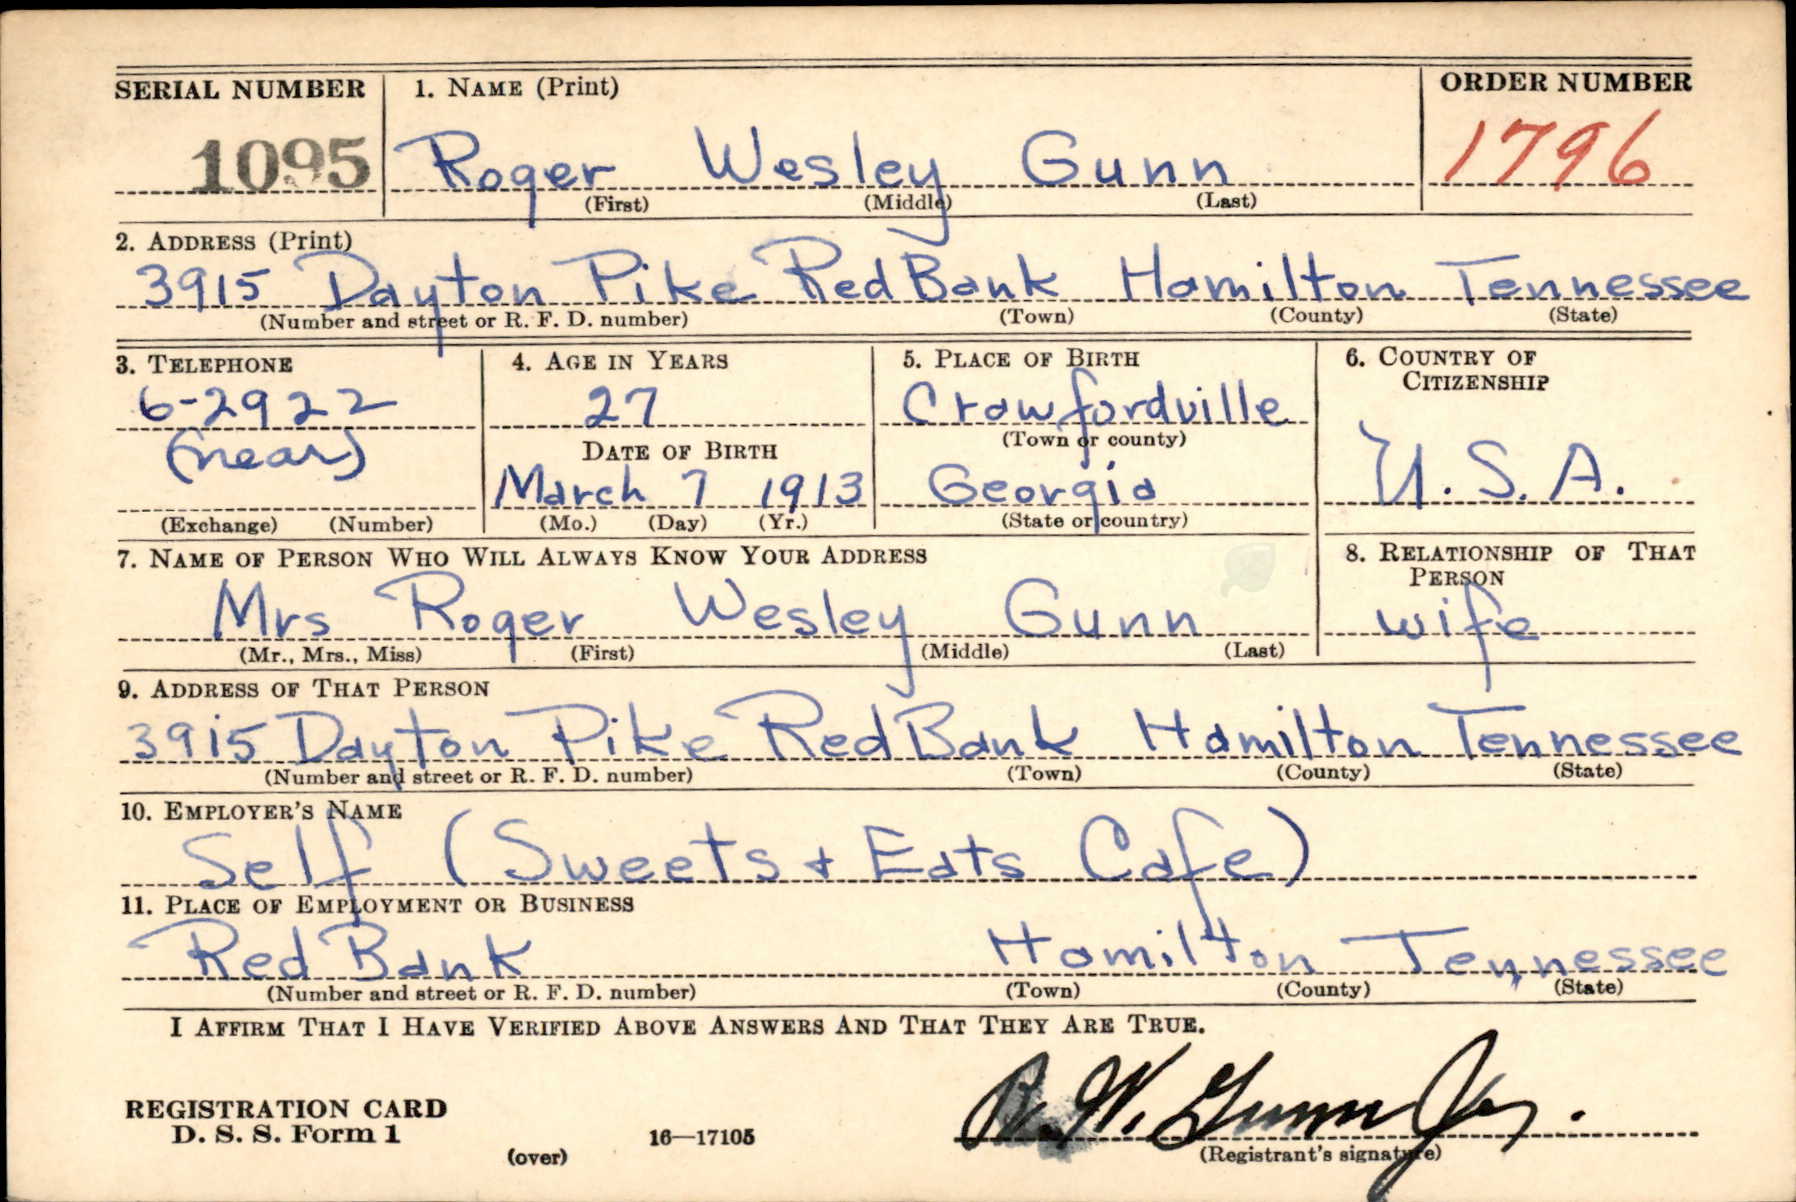 SERIAL NUMBER 1. NAME (Print) ORDER NUMBER
1095 Roger Wesley Gunn 1796
(First) (Middle) (Last)
2. ADDRESS (Print)
3915 Dayton Pike Red Bank Hamilton Tennessee
(Number and street or R. F. D. number) (Town) (County) (State)
3. TELEPHONE 4. AGE IN YEARS 5. PLACE OF BIRTH 6. COUNTRY OF
CITIZENSHIP
6-2922 27 Crawfordville
(near) DATE OF BIRTH (Town or county) U.S.A.
March 7 1913 Georgia
(Exchange) (Number) (Mo.) (Day) (Yr.) (State or country)
7. NAME OF PERSON WHO WILL ALWAYS KNOW YOUR ADDRESS 8. RELATIONSHIP OF THAT
PERSON
Mrs Roger Wesley Gunn wife
(Mr., Mrs., Miss) (First) (Middle) (Last)
9. ADDRESS OF THAT PERSON
3915 Dayton Pike Red Bank Hamilton Tennessee
(Number and street or R. F. D. number) (Town) (County) (State)
10. EMPLOYER'S NAME
Self (Sweets + Eats Cafe)
11. PLACE OF EMPLOYMENT OR BUSINESS
Red Bank Hamilton Tennessee
(Number and street or R. F. D. number) (Town) (County) (State)
I AFFIRM THAT I HAVE VERIFIED ABOVE ANSWERS AND THAT THEY ARE TRUE.
R. W. Gunn Jr.
REGISTRATION CARD
D. S. S. Form 1 16—17105
(over) (Registrant's signature)